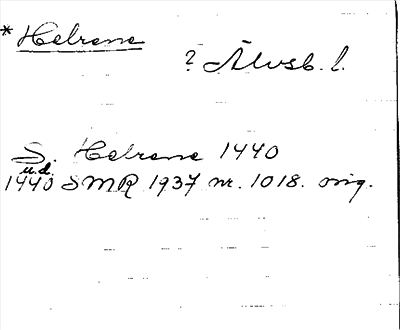 * Helrene
? Älvsb. l.
S. Helrene 1440
u.d.
1440 SMR 1937 nr. 1018. orig.